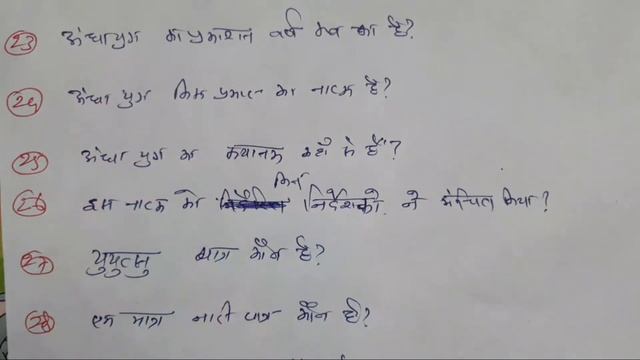 23 अंधायुग का प्रकाशन वर्ष कब का है?
24 अंधा युग किस प्रकार का नाटक है?
25 अंधा युग का कथानक कहाँ से है?
26 इस नाटक को किन निर्देशको ने मंचित किया?
27 युयुत्सु पात्र कौन है?
28 एक मात्र नारी पात्र कौन है?